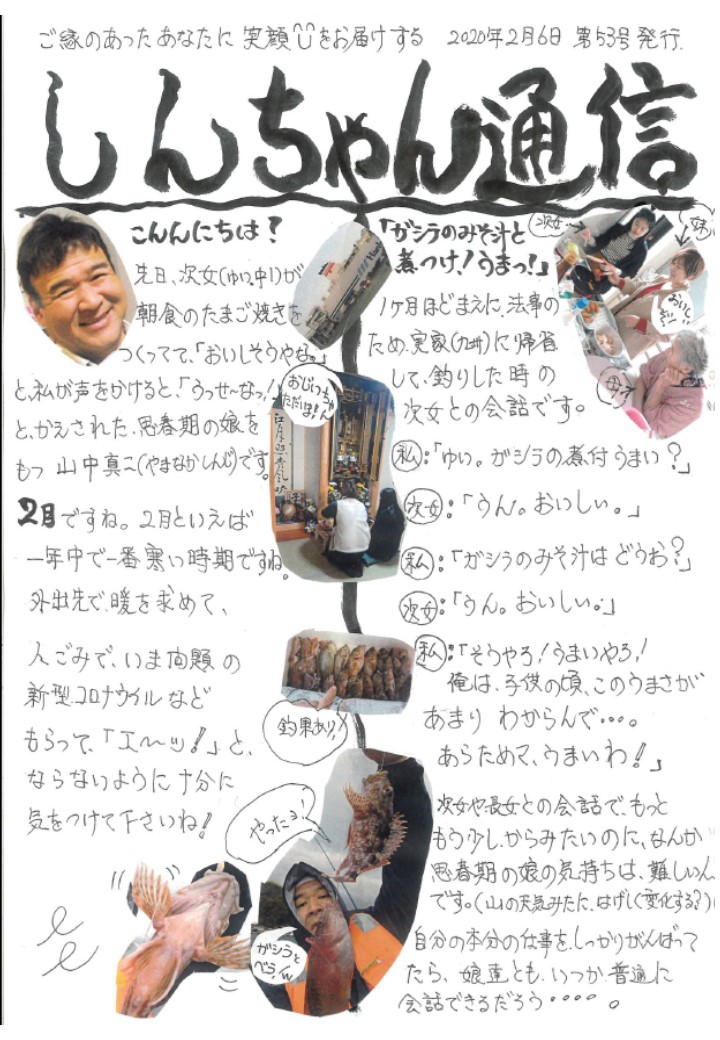 ご縁のあったあなたに 笑顔をお届けする 2020年2月6日 第53号 発行.
しんちゃん通信
こんんにちは!
先日、次女(ゆい。中1)が
朝食のたまご焼きを
つくってて、「おいしそうやな。」
と、私が声をかけると、「うっせ〜なっ!」
と、かえされた、思春期の娘を
もつ 山中真二(やまなかしんじ)です。
2月ですね。2月といえば
一年中で一番寒い時期ですね。
外出先で、暖を求めて、
人ごみで、いま問題の
新型コロナウイルなど
もらって、「エ〜ッ!」と、
ならないように十分に
気をつけて下さいね!
おじいちゃん
ただいま!
釣果あり!
やったる!
ガシラと
ベラ!w
「ガシラのみそ汁と
煮つけ!うまっ!」
次女→
妹
おいしいぞー
母
1ヶ月ほどまえに、法事の
ため、実家(九州)に帰省
して、釣りした時の
次女との会話です。
私:「ゆい。ガシラの煮付うまい?」
次女:「うん。おいしい。」
私:「ガシラのみそ汁はどうお?」
次女:「うん。おいしい。」
私:「そうやろ!うまいやろ!
俺は、子供の頃、このうまさが
あまり わからんで・・・。
あらためて、うまいわ!」
次女や長女との会話で、もっと
もう少し、からみたいのに、なんか
思春期の娘の気持ちは、難しいん
です。(山の天気みたに、はげしく変化する?)
自分の本分の仕事を、しっかりがんばって
たら、娘達とも、いつか、普通に
会話できるだろう・・・・。